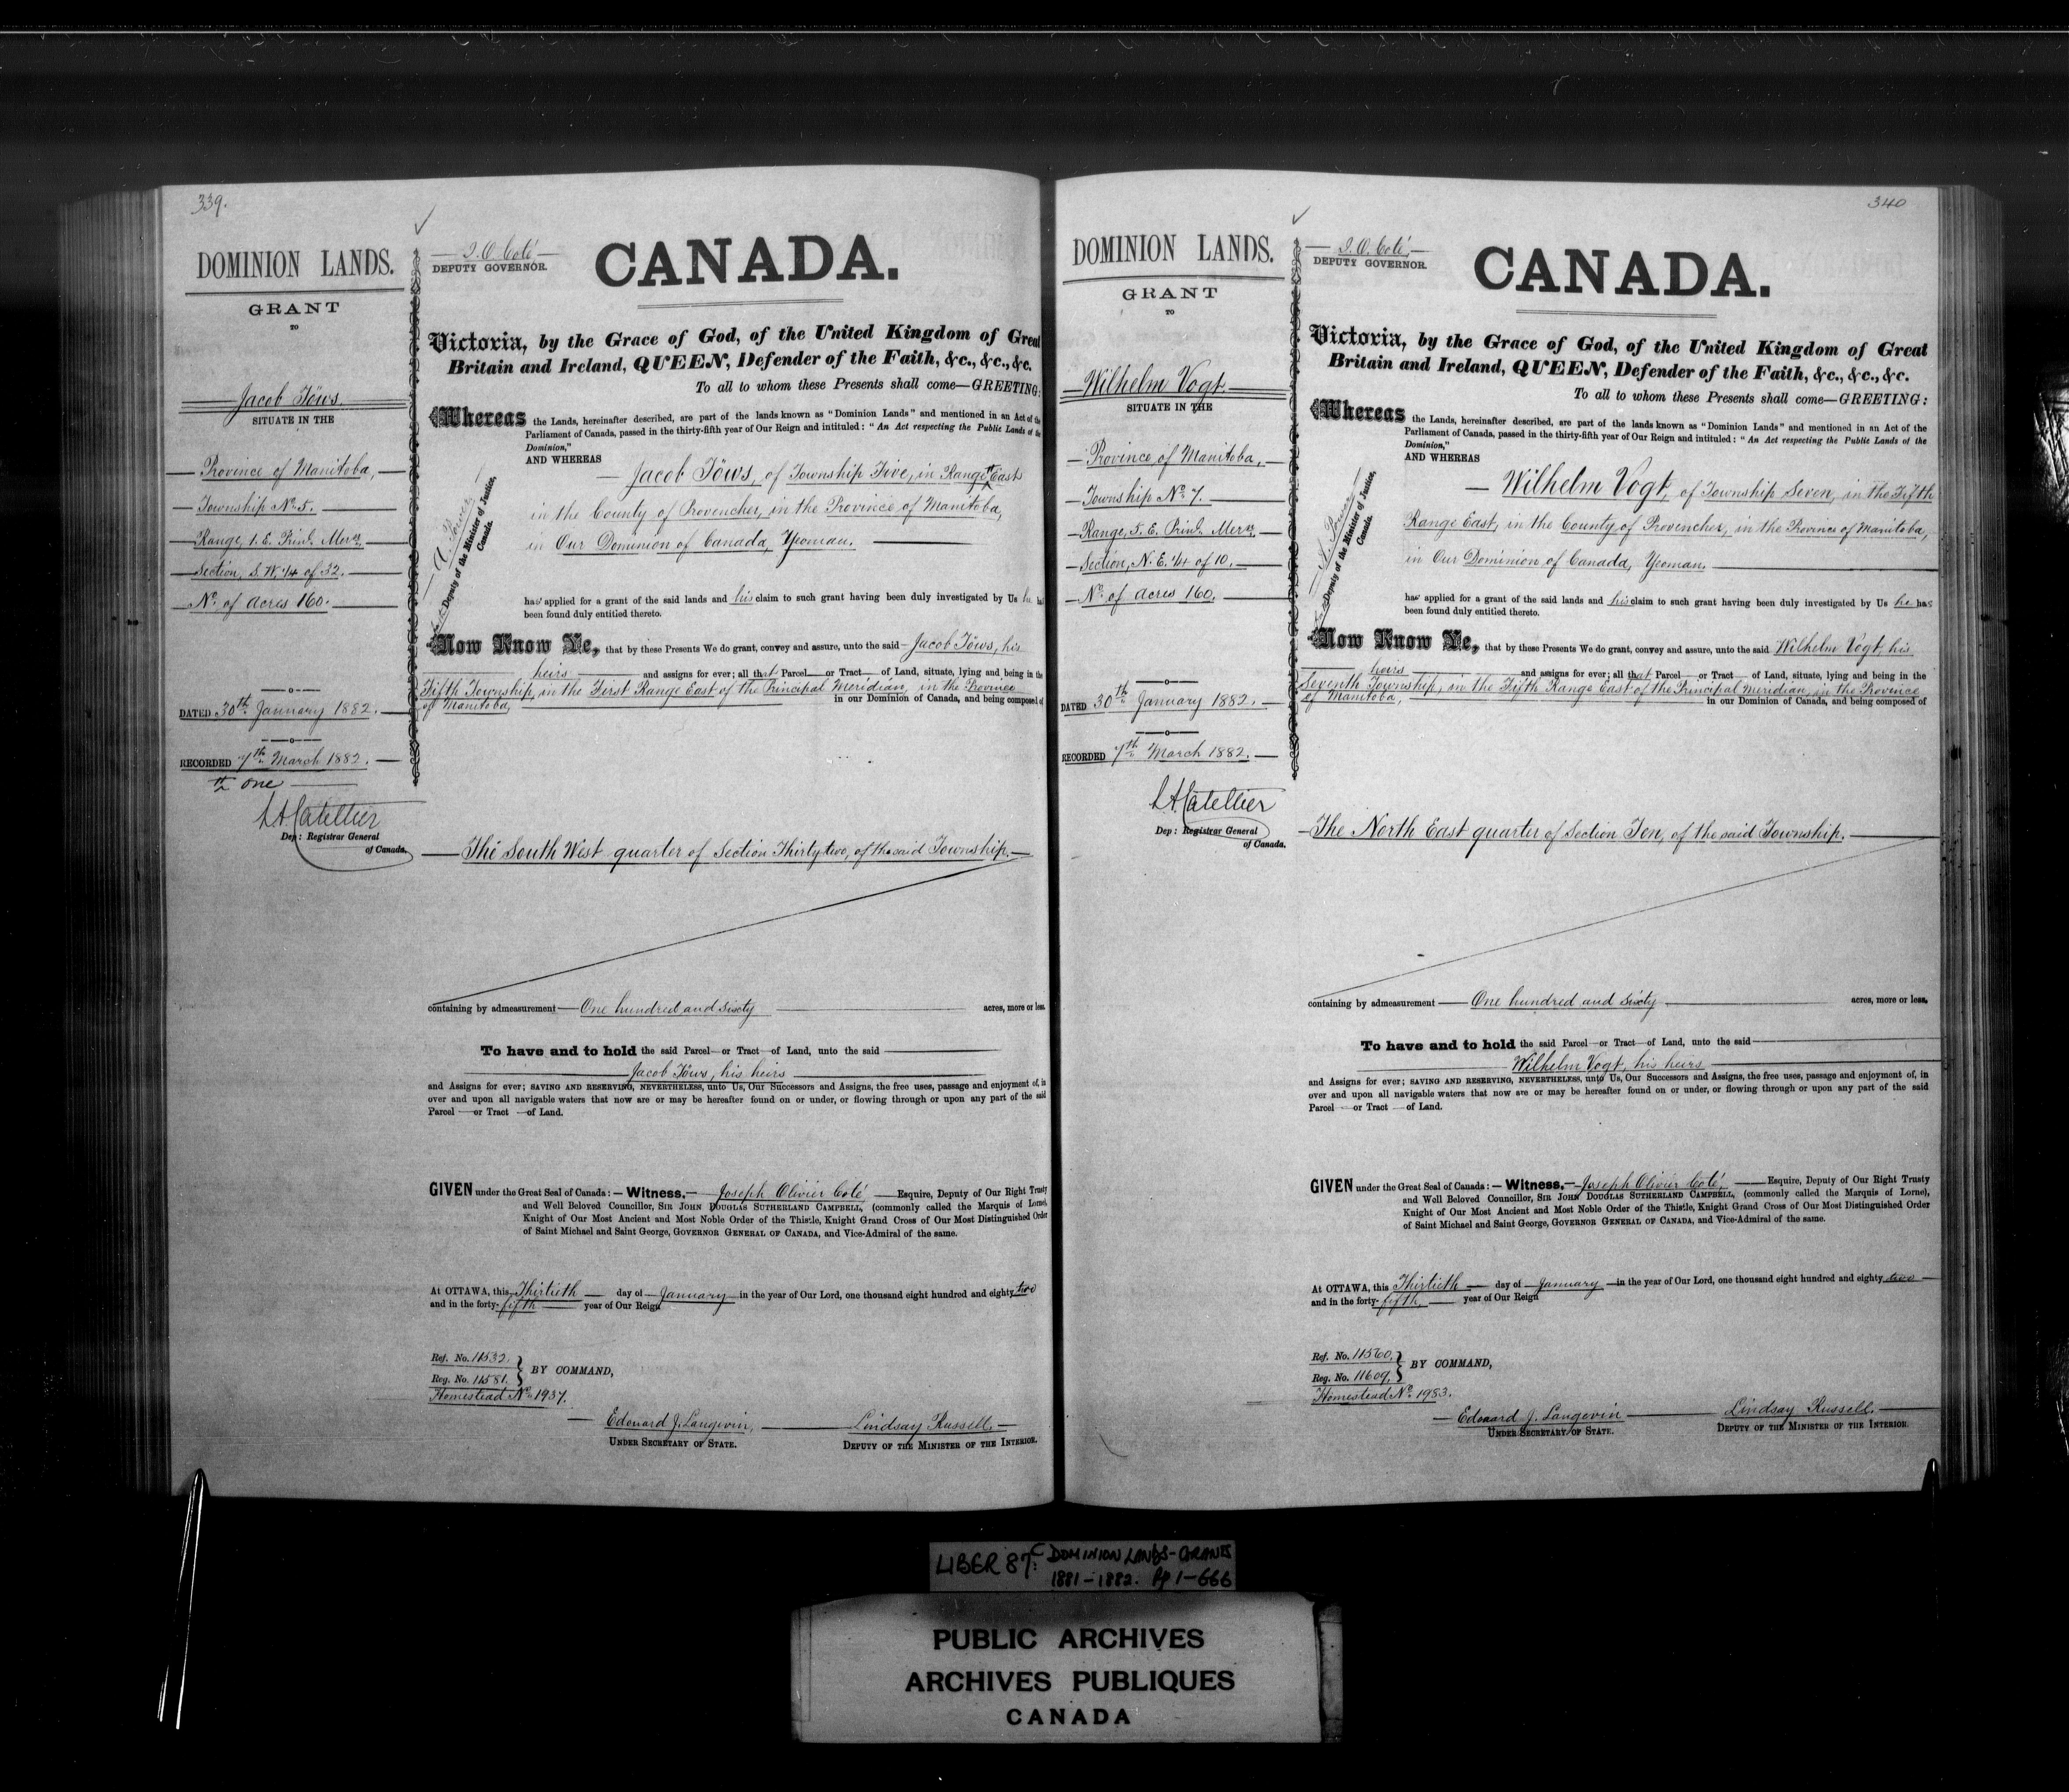 339.
DOMINION LANDS.
GRANT
TO
Jacob Töws
SITUATE IN THE
Province of Manitoba,
Township No. 5.
Range, 1. E. Prinl. Mern.
Section, S. W. 1/4 of 32.
No. of Acres 160.
DATED 30th January 1882.
RECORDED 7th March 1882.
one
L A Catellier
Dep: Registrar General
of Canada.
J. O. Coté
DEPUTY GOVERNOR.
CANADA.
Victoria, by the Grace of God, of the United Kingdom of Great
Britain and Ireland, QUEEN, Defender of the Faith, &c., &c., &c.
To all to whom these Presents shall come—GREETING:
Whereas the Lands, hereinafter described, are part of the lands known as "Dominion Lands" and mentioned in an Act of the
Parliament of Canada, passed in the thirty-fifth year of Our Reign and intituled: "An Act respecting the Public Lands of the
Dominion,"
AND WHEREAS
Jacob Töws, of Township Five, in Range East
in the County of Provencher, in the Province of Manitoba,
in Our Dominion of Canada, Yeoman.
Deputy of the Minister of Justice,
Canada.
has applied for a grant of the said lands and his claim to such grant having been duly investigated by Us he has
been found duly entitled thereto.
Now Know Ye, that by these Presents We do grant, convey and assure, unto the said Jacob Töws, his
heirs and assigns for ever; all that Parcel or Tract of Land, situate, lying and being in the
Fifth Township, in the First Range East of the Principal Meridian, in the Province
of Manitoba, in our Dominion of Canada, and being composed of
The South West quarter of Section Thirty-two, of the said Township.
containing by admeasurement One hundred and Sixty acres, more or less.
To have and to hold the said Parcel or Tract of Land, unto the said
Jacob Töws, his heirs
and Assigns for ever; SAVING AND RESERVING, NEVERTHELESS, unto Us, Our Successors and Assigns, the free uses, passage and enjoyment of, in
over and upon all navigable waters that now are or may be hereafter found on or under, or flowing through or upon any part of the said
Parcel or Tract of Land.
GIVEN under the Great Seal of Canada:— Witness, Joseph Olivier Coté Esquire, Deputy of Our Right Trusty
and Well Beloved Councillor, SIR JOHN DOUGLAS SUTHERLAND CAMPBELL, (commonly called the Marquis of Lorne),
Knight of Our Most Ancient and Most Noble Order of the Thistle, Knight Grand Cross of Our Most Distinguished Order
of Saint Michael and Saint George, GOVERNOR GENERAL OF CANADA, and Vice-Admiral of the same.
At OTTAWA, this Thirtieth day of January in the year of Our Lord, one thousand eight hundred and eighty two
and in the forty-fifth year of Our Reign
Ref. No. 11532.
Reg. No. 11581.
BY COMMAND,
Homestead No. 1937.
Edouard J. Langevin,
UNDER SECRETARY OF STATE.
Lindsay Russell,
DEPUTY OF THE MINISTER OF THE INTERIOR.
340
DOMINION LANDS.
GRANT
TO
Wilhelm Vogt
SITUATE IN THE
Province of Manitoba,
Township No. 7.
Range, 5. E. Prinl. Mern.
Section, N. E. 1/4 of 10.
No. of Acres 160.
DATED 30th January 1882.
RECORDED 7th March 1882.
L A Catellier
Dep: Registrar General
of Canada.
J. O. Coté
DEPUTY GOVERNOR.
CANADA.
Victoria, by the Grace of God, of the United Kingdom of Great
Britain and Ireland, QUEEN, Defender of the Faith, &c., &c., &c.
To all to whom these Presents shall come—GREETING:
Whereas the Lands, hereinafter described, are part of the lands known as "Dominion Lands" and mentioned in an Act of the
Parliament of Canada, passed in the thirty-fifth year of Our Reign and intituled: "An Act respecting the Public Lands of the
Dominion,"
AND WHEREAS
Wilhelm Vogt, of Township Seven, in the Fifth
Range East, in the County of Provencher, in the Province of Manitoba,
in Our Dominion of Canada, Yeoman.
Deputy of the Minister of Justice,
Canada.
has applied for a grant of the said lands and his claim to such grant having been duly investigated by Us he has
been found duly entitled thereto.
Now Know Ye, that by these Presents We do grant, convey and assure, unto the said Wilhelm Vogt, his
heirs and assigns for ever; all that Parcel or Tract of Land, situate, lying and being in the
Seventh Township, in the Fifth Range East of the Principal Meridian, in the Province
of Manitoba, in our Dominion of Canada, and being composed of
The North East quarter of Section Ten, of the said Township.
containing by admeasurement One hundred and Sixty acres, more or less,
To have and to hold the said Parcel or Tract of Land, unto the said
Wilhelm Vogt, his heirs
and Assigns for ever; SAVING AND RESERVING, NEVERTHELESS, unto Us, Our Successors and Assigns, the free uses, passage and enjoyment of, in
over and upon all navigable waters that now are or may be hereafter found on or under, or flowing through or upon any part of the said
Parcel or Tract of Land.
GIVEN under the Great Seal of Canada:— Witness, Joseph Olivier Coté, Esquire, Deputy of Our Right Trusty
and Well Beloved Councillor, SIR JOHN DOUGLAS SUTHERLAND CAMPBELL, (commonly called the Marquis of Lorne),
Knight of Our Most Ancient and Most Noble Order of the Thistle, Knight Grand Cross of Our Most Distinguished Order
of Saint Michael and Saint George, GOVERNOR GENERAL OF CANADA, and Vice-Admiral of the same.
At OTTAWA, this Thirtieth day of January in the year of Our Lord, one thousand eight hundred and eighty two
and in the forty-fifth year of Our Reign
Ref. No. 11560.
Reg. No. 11609.
BY COMMAND,
Homestead No. 1983.
Edouard J. Langevin
UNDER SECRETARY OF STATE.
Lindsay Russell,
DEPUTY OF THE MINISTER OF THE INTERIOR.
LIBER 87: DOMINION LANDS-GRANTS
1881-1882. Pp 1-666
PUBLIC ARCHIVES
ARCHIVES PUBLIQUES
CANADA